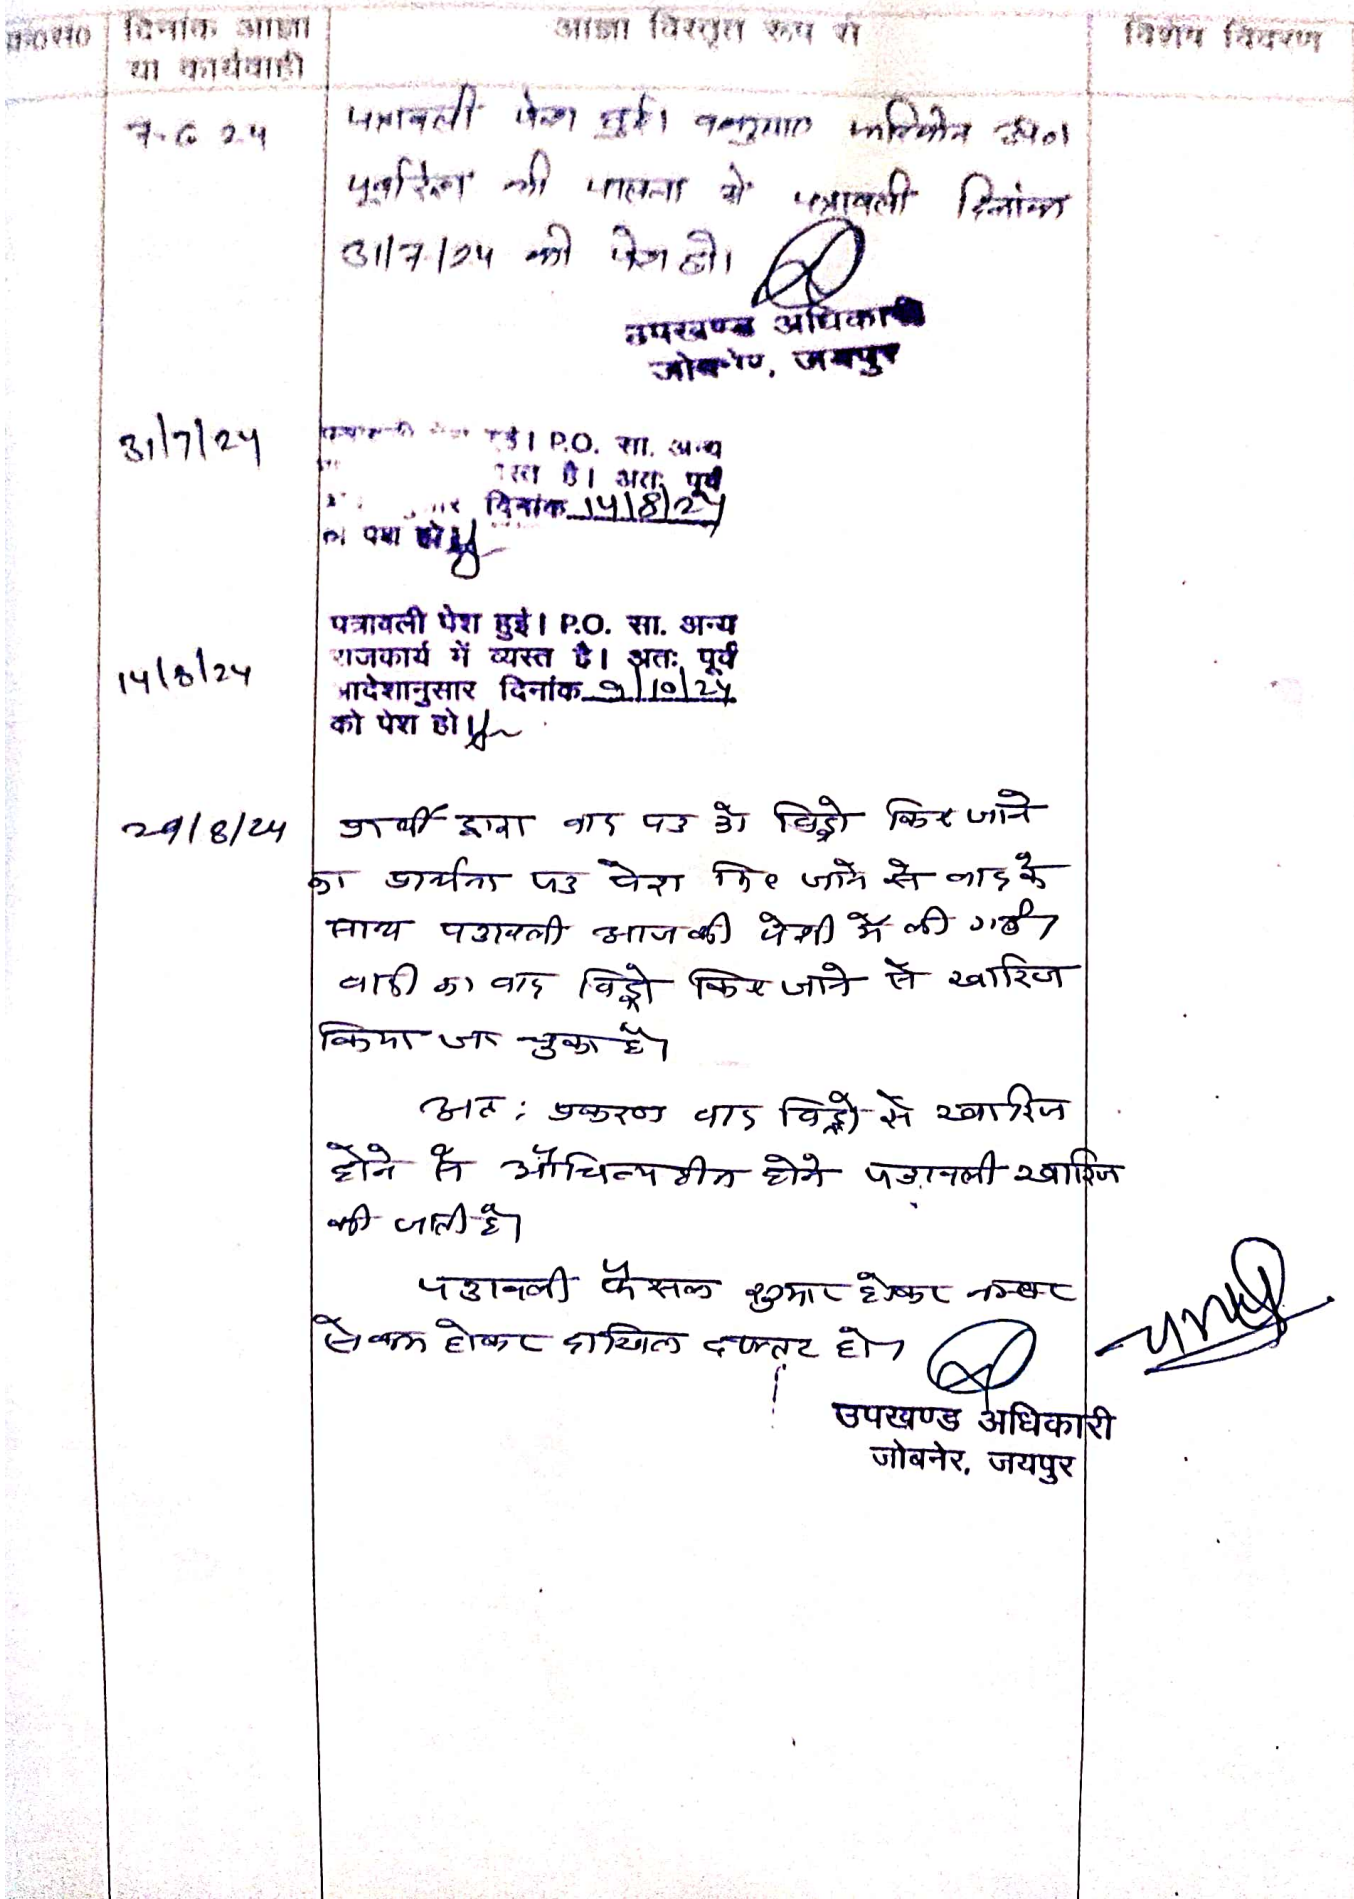 क्र०सं० दिनांक आज्ञा या कार्यवाही आज्ञा विस्तृत रूप से विशेष विवरण
7-6-24 पत्रावली पेश हुई।
पूर्वादेश की पालना में पत्रावली दिनांक
31/7/24 को पेश हो।
उपखण्ड अधिकारी
जोबनेर, जयपुर
31/7/24 पत्रावली पेश हुई। P.O. सा. अन्य
व्यस्त है। अतः पूर्व
दिनांक 14/8/24
को पेश हो।
पत्रावली पेश हुई। P.O. सा. अन्य
14/8/24 राजकार्य में व्यस्त है। अतः पूर्व
आदेशानुसार दिनांक 9/10/24
को पेश हो।
29/8/24 प्रार्थी द्वारा वाद पत्र को विड्रो किए जाने
का प्रार्थना पत्र पेश किए जाने से वाद के
साथ पत्रावली आज की पेशी में ली गई।
वादी का वाद विड्रो किए जाने से खारिज
किया जा चुका है।
अतः प्रकरण वाद विड्रो से खारिज
होने से औचित्यहीन होने पत्रावली खारिज
की जाती है।
पत्रावली फैसल शुमार होकर नम्बर
से कम होकर दाखिल दफ्तर हो।
उपखण्ड अधिकारी
जोबनेर, जयपुर